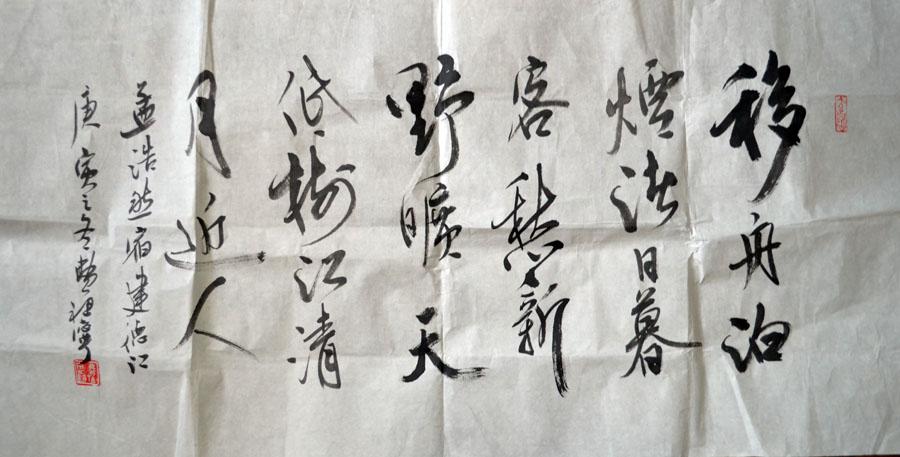 移舟泊
煙渚日暮
客愁新
野曠天
低樹江清
月近人
孟浩然宿建德江
庚寅之冬